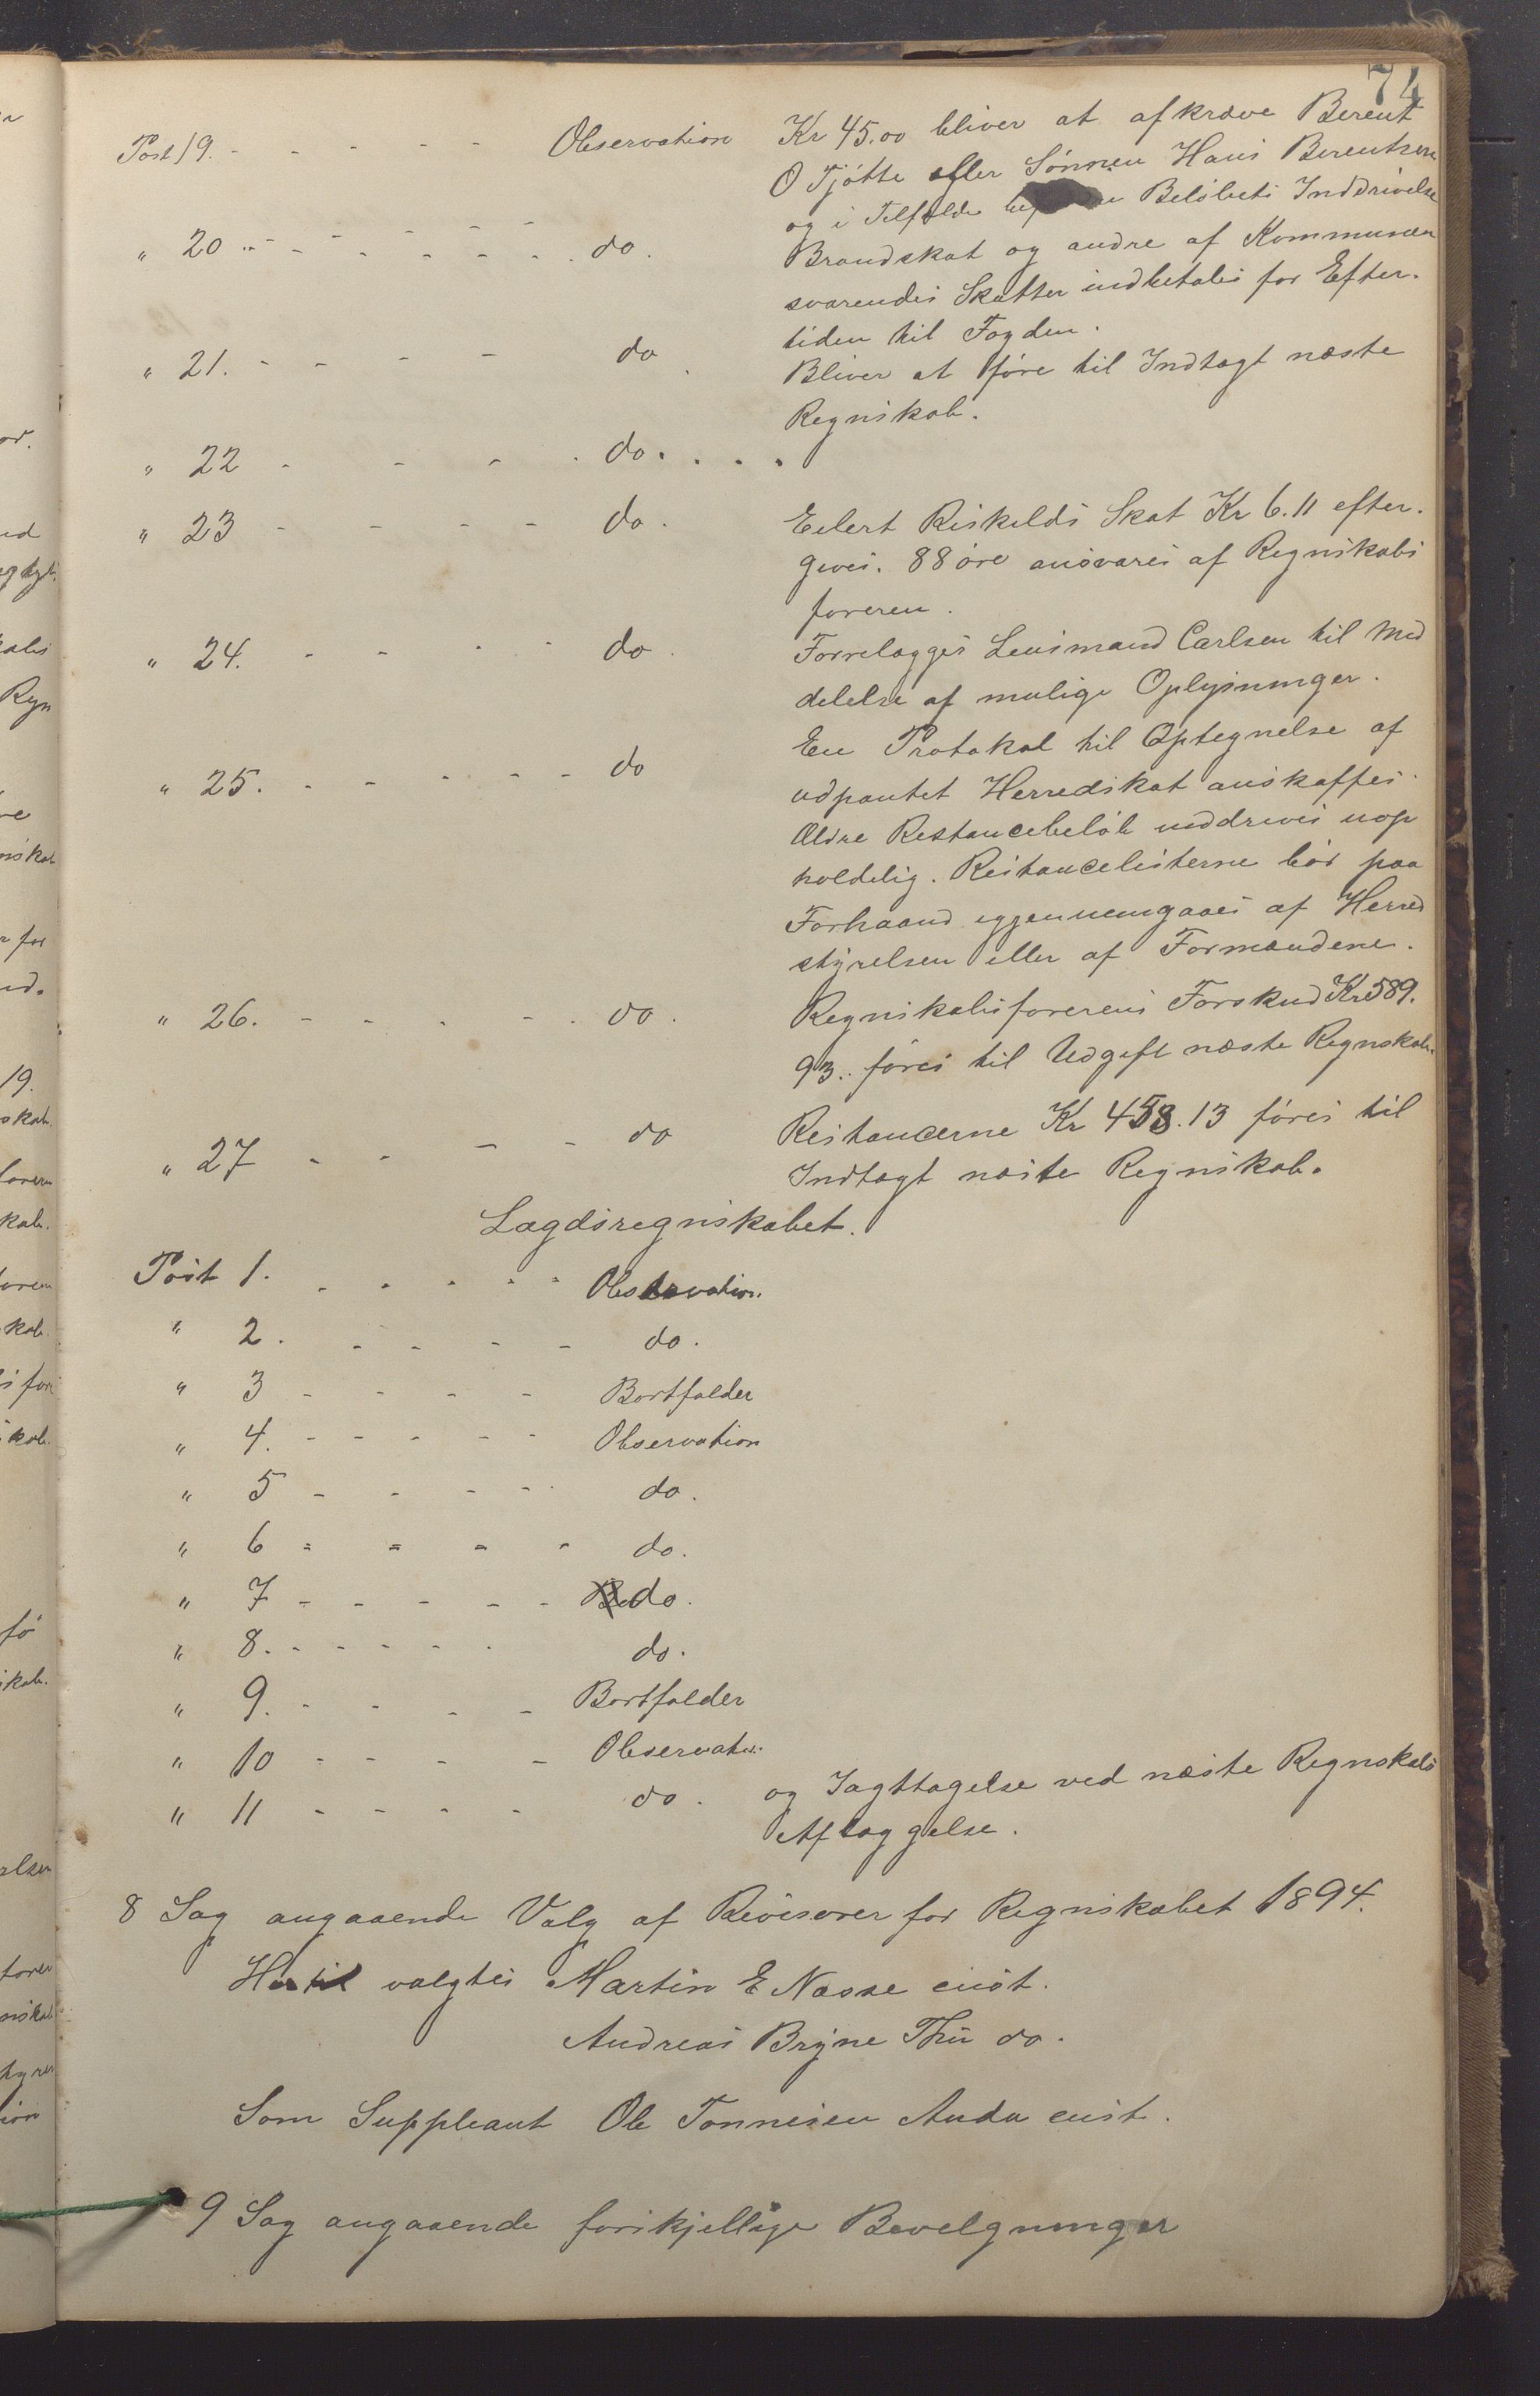 74
Post 19. - - - - - Observation Kr 45.00 bliver at afkræve Berent
O Tjøtte eller Sønnen Hans Berentsen
og i Tilfælde Beløbets Inddrivelse
" 20 - - - - - - - do. Brandskat og andre af Kommunen
svarendes Skatter indbetales for Efter-
tiden til Fogden.
" 21. - - - - do. Bliver at føre til Indtægt næste
Regnskab.
" 22 - - - - do. . . .
" 23 - - - - do. Eilert Riskilds Skat Kr 6.11 efter-
gives. 88 øre ansvares af Regnskabs
føreren.
" 24. - - - - do. Forrelægges Lensmand Carlsen til Med
delelse af mulige Oplysninger.
" 25. - - - - - do En Protokol til Optegnelse af
udpantet Herredskat anskaffes.
Ældre Restancebeløb inddrives uop
holdelig. Restancelisterne bør paa
Forhaand igjennemgaaes af Herred
styrelsen eller af Formændene.
" 26. - - - - - do. Regnskabsførerens Forskud Kr 589.
93. føres til Udgift næste Regnskab.
" 27 - - - - do Restancerne Kr 453.13 føres til
Indtægt næste Regnskab.
Lægdsregnskabet.
Post 1. - - - - - Observation.
" 2. - - - - do.
" 3 - - - - Bortfalder
" 4. - - - - - Observation
" 5 - - - - do.
" 6 - - - - do.
" 7 - - - - - do.
" 8. - - - - - do.
" 9. - - - - Bortfalder
" 10 - - - - Observation.
" 11 - - - - do. og Iagttagelse ved næste Regnskabs
Aflæggelse.
8 Sag angaaende Valg af Revisorer for Regnskabet 1894.
Hertil valgtes Martin E Næsse enst.
Andreas Bryne Thu do.
Som Suppleant Ole Tønnesen Auda enst.
9 Sag angaaende forskjellige Bevelgninger